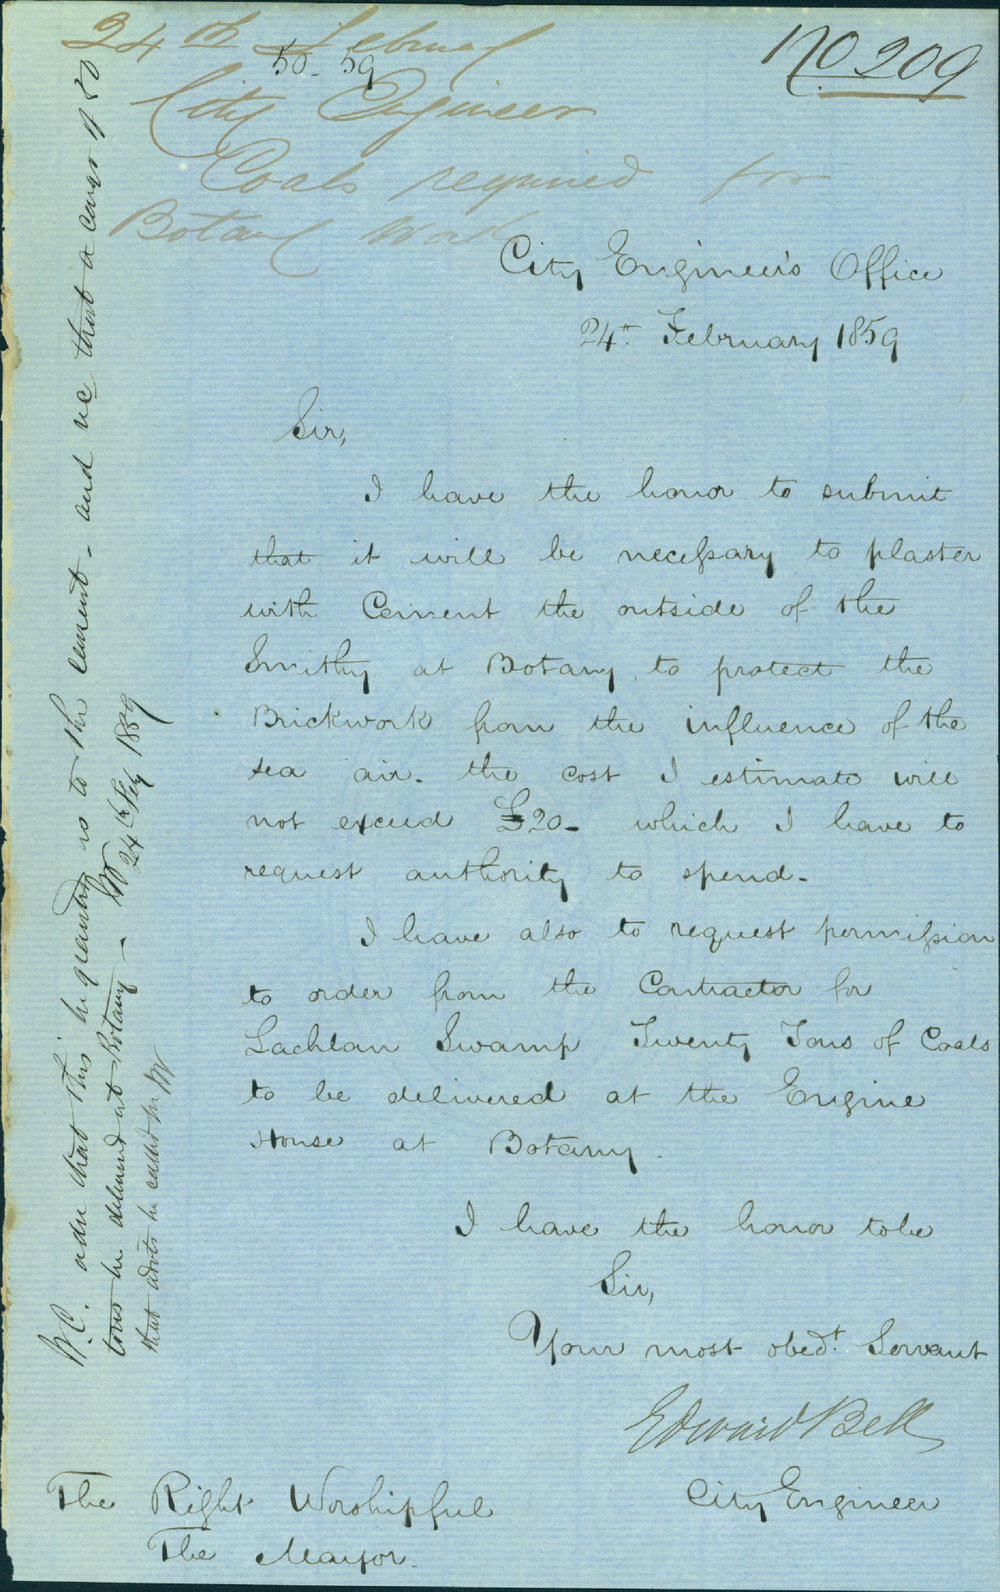 24th Februay
50-59
No 209
City Engineer
Coals required for
Botany
City Engineer's Office
24th February 1859
Sir,
I have the honor to submit
that it will be necessary to plaster
with Cement the outside of the
Smithy at Botany, to protect the
Brickwork from the influence of the
sea air. the cost I estimate will
not exceed £20 - which I have to
request authority to spend -
I have also to request permission
to order from the Contractor for
Lachlan Swamp Twenty Tons of Coals
to be delivered at the Engine
House at Botany.
I have the honor to be
Sir,
Your most obedt. Servant
Edward Bell
City Engineer
The Right Worshipful
The Mayor.
W.C. that this be granted as to the cement - and that a cargo of 50
tons be delivered at Botany -
24th Feby 1859
that be called for